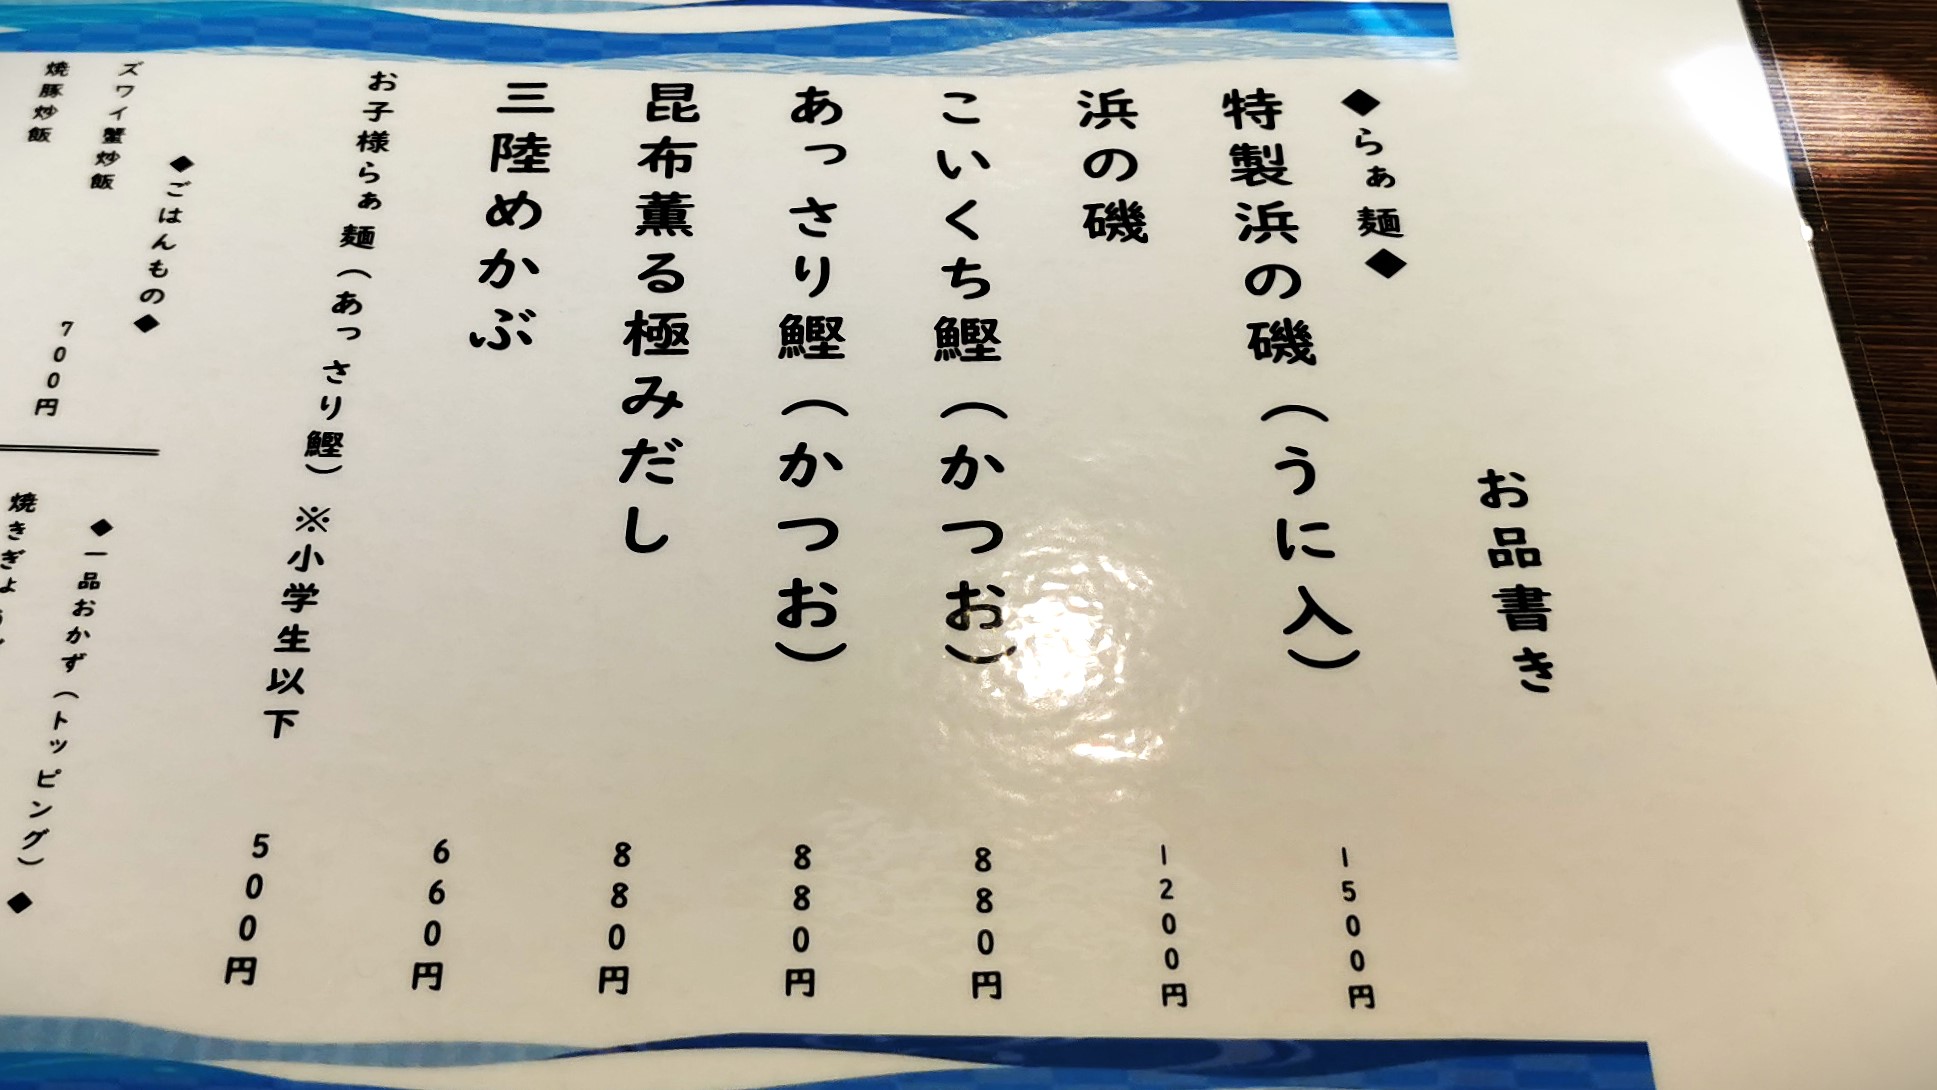 お品書き
◆らぁ麺◆
特製浜の磯(うに入) 1500円
浜の磯 1200円
こいくち鰹(かつお) 880円
あっさり鰹(かつお) 880円
昆布薫る極みだし 880円
三陸めかぶ 660円
お子様らぁ麺(あっさり鰹)※小学生以下 500円
◆ごはんもの◆
ズワイ蟹炒飯 700円
焼豚炒飯
◆一品おかず(トッピング)◆
焼きぎょ